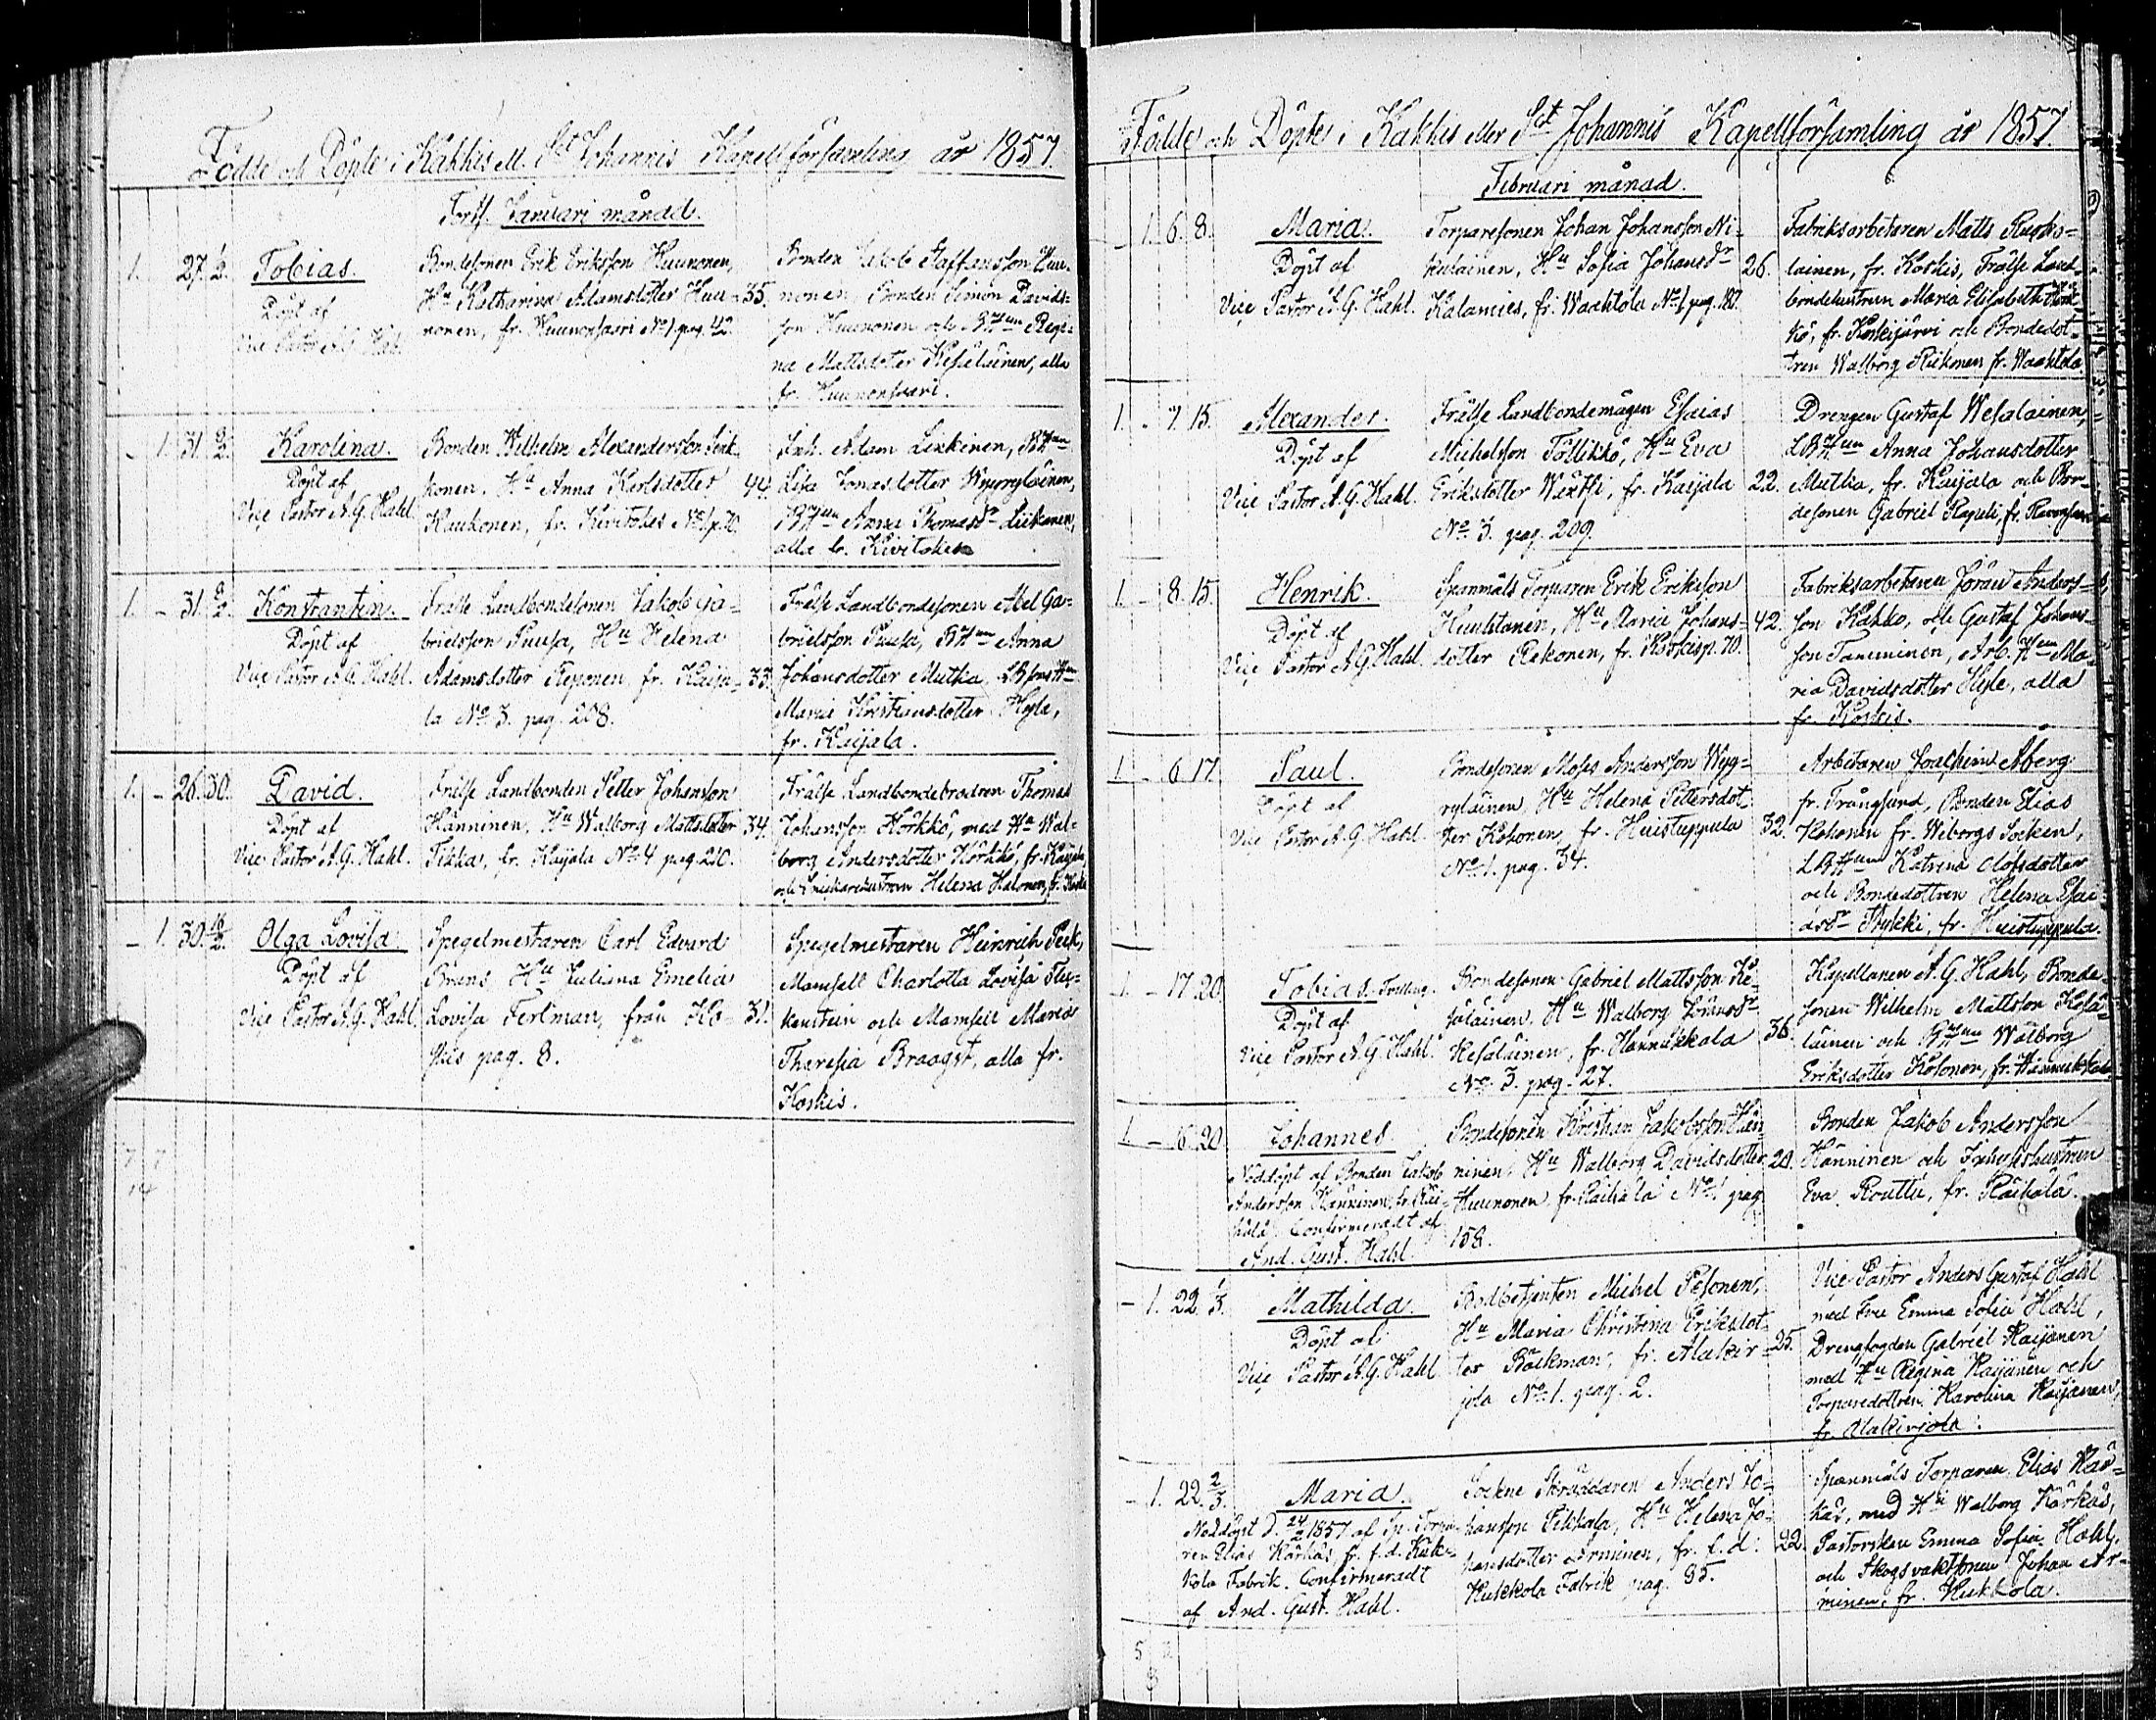 Födde och Döpte i Kakkis el. Sct Johannis Kapellförsamling år 1857.
Forts. Januari månad.
1. 27. 1/2. Tobias.
Döpt af
Vice Pastor A. G. Hahl.
Bondesonen Erik Eriksson Huunonen,
Hu Katharina Adamsdotter Huu- 35.
nonen, fr. Huunonsaari No 1. pag. 42.
Bonden Jakob Staffansson Huu-
nonen, Bonden Simon Davids-
son Huunonen och BHun Regi-
na Mattsdotter Kesäläinen, alla
fr. Huunonsaari.
1. 31. 2/2. Karolina.
Döpt af
Vice Pastor A. G. Hahl
Bonden Wilhelm Alexandersson
konen, Hu Anna Karlsdotter 44.
Kaukonen, fr. Kivitokes No 1 p. 70.
Inh. Adam Linkinen, BHun
Lisa Jonasdotter Wyyryläinen,
BHun Anna Thomasdr Liikanen,
alla fr. Kivitokes
1. - 31. 8/2. Konstantin.
Döpt af
Vice Pastor A. G. Hahl.
Frälse Landbondesonen Jakob Ga-
brielsson Puusa, Hu Helena
Adamsdotter Reponen fr. Kaija- 33.
la No 3. pag. 208.
Frälse Landbondesonen Abel Ga-
brielsson Puusa, BHun Anna
Johansdotter Mutka, LBsons Hun
Maria Kristiansdotter Hyle,
fr. Kaijala.
1. - 26. 30. David.
Döpt af
Vice Pastor A. G. Hahl.
Frälse Landbonden Petter Johansson
Hänninen, Hu Walborg Mattsdotter 34.
Tikka, fr. Kaijala No 4 pag. 210.
Frälse Landbondebrodren Thomas
Johansson Hörkkö, med Hu Wal-
borg Andersdotter Hörkkö, fr. Kaijala,
och Snickarehustrun Helena Halonen, fr. Koskis
- 1. 30. 16/2. Olga Lovisa
Döpt af
Vice Pastor A. G. Hahl.
Spegelmestaren Carl Edvard
Brans, Hu Juliana Emelia
Lovisa Ferlman, från Ko- 31.
skis pag. 8.
Spegelmestaren Heinrich Peck,
Mamsell Charlotta Lovisa
och Mamsell Maria
Theresia Braagst, alla fr.
Koskis.
7 7
14
Födde och Döpte i Kakkis eller Sct Johannis Kapellförsamling år 1857.
Februari månad.
- 1. 6. 8. Maria.
Döpt af
Vice Pastor A. G. Hahl.
Torparesonen Johan Johansson Ni-
kulainen, Hu Sofia Johansdr 26.
Kalamies, fr. Waahtola No 1 pag. 180.
Fabriksarbetaren Matts Rusko-
lainen, fr. Koskis, Frälse Land-
bondehustrun Maria Elisabeth
kö, fr. Koskijärvi och Bondedot-
tren Walborg Riikonen fr. Waahtola
1. - 7. 15. Alexander.
Döpt af
Vice Pastor A. G. Hahl.
Frälse Landbondemågen Esaias
Michelsson Töllikkö, Hu Eva
Eriksdotter Wäntsi, fr. Kaijala 22.
No 3. pag. 209.
Drengen Gustaf Wesalainen,
LBHun Anna Johansdotter
Mutka, fr. Kaijala och Bon-
desonen Gabriel Raputi, fr.
1. - 8. 15. Henrik.
Döpt af
Vice Pastor A. G. Hahl.
Spanmåls Torparen Erik Eriksson
Huuhtanen, Hu Maria Johans- 42.
dotter Rekonen, fr. Koskis p. 70.
Fabriksarbetaren Jöran Anders-
son Kakko, och Gustaf Johans-
son Tamminen, Arb. Hun Ma-
ria Davidsdotter Hyle, alla
fr. Koskis.
1. - 6. 17. Paul.
Döpt af
Vice Pastor A. G. Hahl.
Bondesonen Moses Andersson Wyy-
ryläinen, Hu Helena Pettersdot-
ter Kohonen, fr. Huistuppula 32.
No 1. pag. 34.
Arbetaren Joachim Åberg
fr. Trångsund, Bonden Elias
Kohonen fr. Wiborgs Socken,
LBHun Katrina Olofsdotter
och Bondedottren Helena Esai-
asdr Pykki, fr. Huistuppula.
1. - 17. 20. Tobias.
Döpt af
Vice Pastor A. G. Hahl.
Bondesonen Gabriel Mattsson Ke-
säläinen, Hu Walborg Simonsdr
Kesäläinen, fr. Hannukkala 36.
No 3. pag. 27.
Kapellanen A. G. Hahl, Bonde-
sonen Wilhelm Mattsson Kesä-
läinen och BHun Walborg
Eriksdotter Kolonen, fr. Hannukkala
1. - 16. 20. Johannes.
Nöddöpt af Bonden Jakob
Andersson Hänninen, fr. Räi-
hälä. Confirmeradt af
And. Gust. Hahl.
Bondesonen Kristian Jakobsson Hän-
ninen, Hu Walborg Davidsdotter 20.
Huunonen, fr. Räihälä No 1 pag.
158.
Bonden Jakob Andersson
Hänninen och Inhyseshustrun
Eva Routtu, fr. Räihälä.
- 1. 22. 1/3. Mathilda.
Döpt af
Vice Pastor A. G. Hahl
Bodbetjenten Michel Pesonen,
Hu Maria Christina Eriksdot-
ter Bäckman, fr. Alakir- 25.
jola No 1. pag. 2.
Vice Pastor Anders Gustaf Hahl
med Fru Emma Sofia Hahl,
Drengfogden Gabriel Kaijanen
med Hu Regina Kaijanen och
Torparedottren Karolina Kaijanen,
fr. Alakirjola.
- 1. 22. 2/3. Maria.
Nöddöpt d. 24/2 1857 af Sp. Torpa-
ren Elias Kärkäs, fr. f. d. Kuk-
kola Fabrik. Confirmeradt
af And. Gust. Hahl.
Sockne Skräddaren Anders Jo-
hansson Pikkola, Hu Helena Jo-
hansdotter Arminen, fr. f. d: 22.
Kukkola Fabrik pag. 95.
Spanmåls Torparen Elias Kär-
käs, med Hu Walborg Kärkäs,
Pastorskan Emma Sofia Hahl,
och Skogsvaktsonen Johan Ar-
minen, fr. Kukkola.
5
8